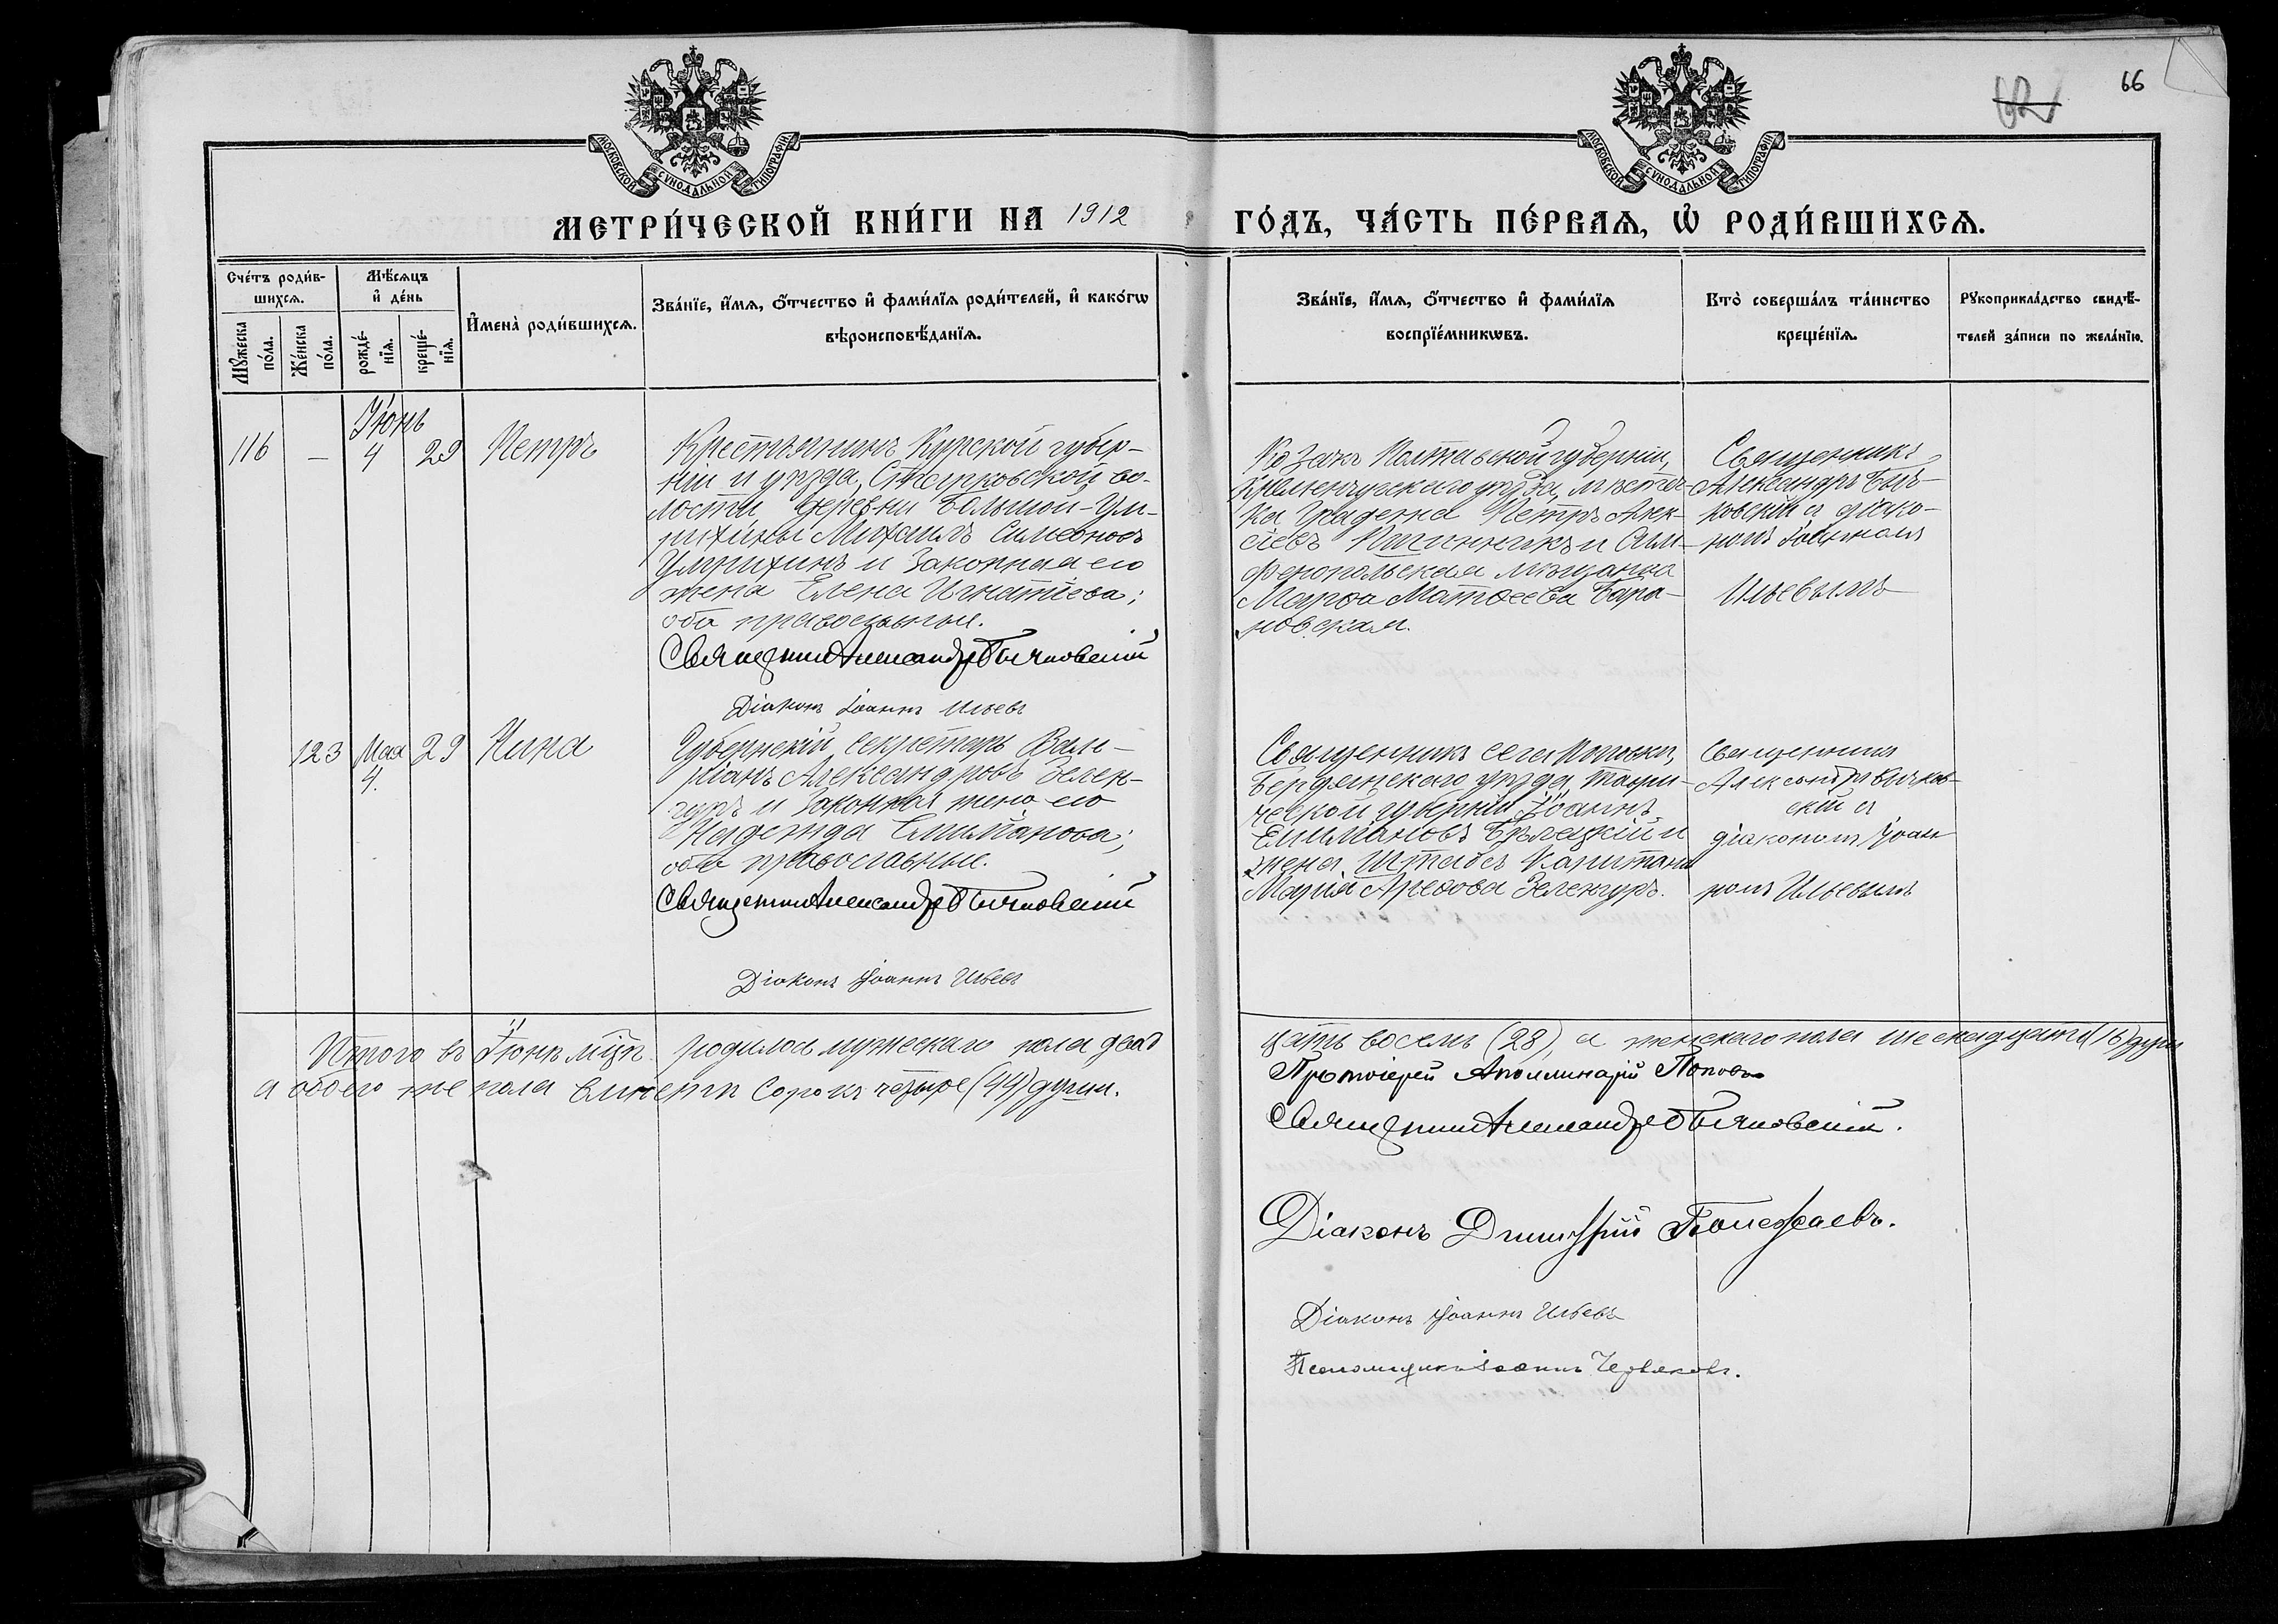 МОСКОВСКОЙ СУНОДАЛЬНОЙ ТИПОГРАФІИ
МОСКОВСКОЙ СУНОДАЛЬНОЙ ТИПОГРАФІИ
66
МЕТРИ́ЧЕСКОЙ КНИ́ГИ НА 1912 ГО́ДЪ, ЧА́СТЬ ПЕ́РВАѦ, Ѡ҆ РОДИ́ВШИХСѦ.
Сче́тъ роди́в-
шихсѧ.
Мꙋжеска по́ла.
Же́нска по́ла.
Мѣ́сѧцъ
и҆ де́нь
рожде́-
нїѧ.
креще́-
нїѧ.
И҆мена̀ роди́вшихсѧ.
Зва́нїе, и҆́мѧ, ѻ҆́тчество и҆ фами́лїѧ роди́телей, и҆ како́гѡ
вѣроисповѣ́данїѧ.
Зва́нїе, и҆́мѧ, ѻ҆́тчество и҆ фами́лїѧ
воспрїе́мникѡвъ.
Кто̀ соверша́лъ та́инство
креще́нїѧ.
Рꙋкоприкла́дство свидѣ́-
телей за́писи по жела́нїю.
116
—
Іюнь
4
29
Петръ
Крестьянинъ Курской губер-
ніи и уѣзда, во-
лости деревни Большой-Ум-
рихины Михаилъ Симеоновъ
Умрихинъ и законная его
жена Елена Игнатіева;
оба православные.
Священникъ Александръ Бычковскій
Діаконъ Іоаннъ Ильевъ
Козакъ Полтавской губерніи,
Кременчугскаго уѣзда, мѣстеч-
ка Градежа Петръ Алек-
сіевъ и Сим-
феропольская мѣщанка
Марѳа Матѳеева Бара-
новская.
Священникъ
Александръ Быч-
ковскій съ діако-
номъ Іоанномъ
Ильевымъ
123
Мая
4.
29
Нина
Губернскій секретарь Вале-
ріанъ Александровъ Зелен-
гуръ и законная жена его
Надежда Емиліанова;
оба православные.
Священникъ Александръ Бычковскій
Діаконъ Іоаннъ Ильевъ
Священникъ села Поповки,
Бердянскаго уѣзда, Таври-
ческой губерніи Іоаннъ
Емиліановъ Бѣлецкій и
жена Штабсъ Капитана
Марія Зеленгуръ.
Священникъ
Александръ Бычков-
скій съ
діакономъ Іоан-
номъ Ильевымъ
Итого въ Іюнѣ мцѣ родилось мужескаго пола двад
цать восемь (28), а женскаго пола шестнадцать (16) душъ
а обоего же пола вмѣстѣ сорокъ четыре (44) души.
Протоіерей Аполлинарій Поповъ
Священникъ Александръ Бычковскій.
Діаконъ Дмитрій Полежаевъ.
Діаконъ Іоаннъ Ильевъ
Псаломщикъ Іоаннъ Червяковъ.